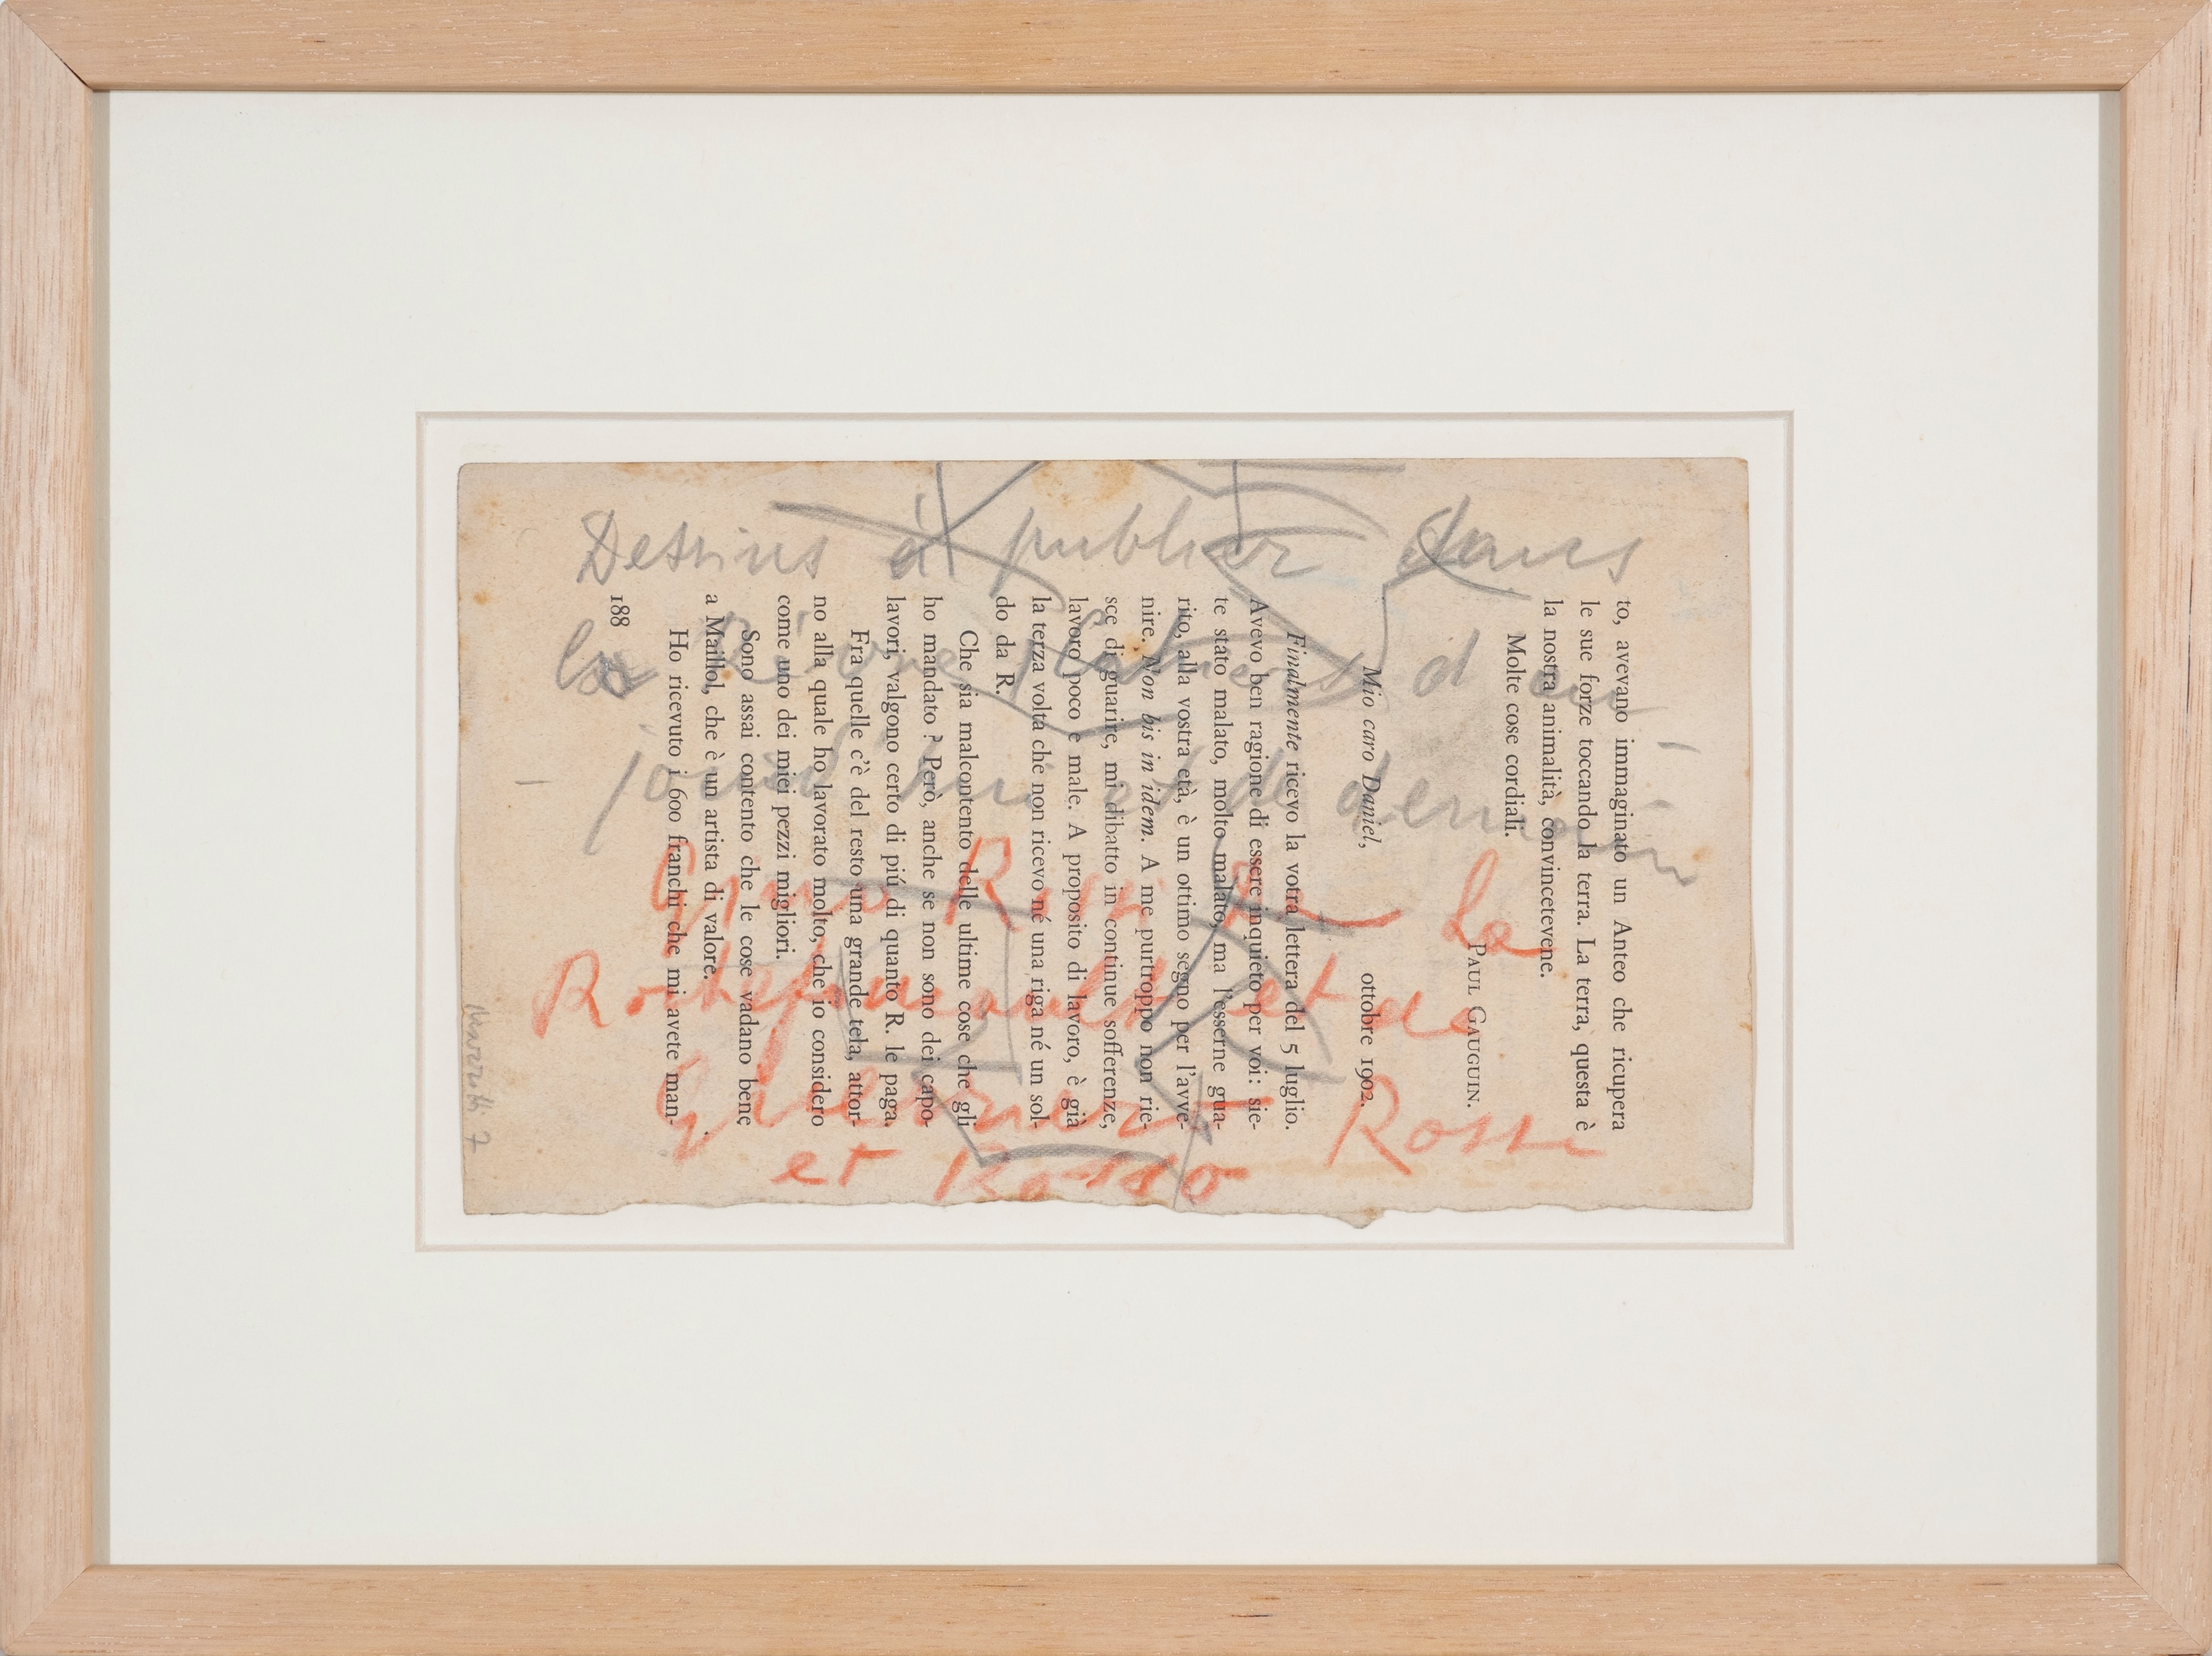 to, avevano immaginato un Anteo che ricupera
le sue forze toccando la terra. La terra, questa è
la nostra animalità, convincetevene.
Molte cose cordiali.
PAUL GAUGUIN.
ottobre 1902.
Mio caro Daniel,
Finalmente ricevo la votra lettera del 5 luglio.
Avevo ben ragione di essere inquieto per voi: sie-
te stato malato, molto malato, ma l'esserne gua-
rito, alla vostra età, è un ottimo segno per l'avve-
nire. Non bis in idem. A me purtroppo non rie-
sce di guarire, mi dibatto in continue sofferenze,
lavoro poco e male. A proposito di lavoro, è già
la terza volta che non ricevo né una riga né un sol-
do da R.
Che sia malcontento delle ultime cose che gli
ho mandato? Però, anche se non sono dei capo-
lavori, valgono certo di piú di quanto R. le paga.
Fra quelle c'è del resto una grande tela, attor-
no alla quale ho lavorato molto, che io considero
come uno dei miei pezzi migliori.
Sono assai contento che le cose vadano bene
a Maillol, che è un artista di valore.
Ho ricevuto i 600 franchi che mi avete man-
188
Dessins à publier dans
la d'au
jourd'hui et de demain
de La
Rochefoucault et de
Rossi
et Rosso
7